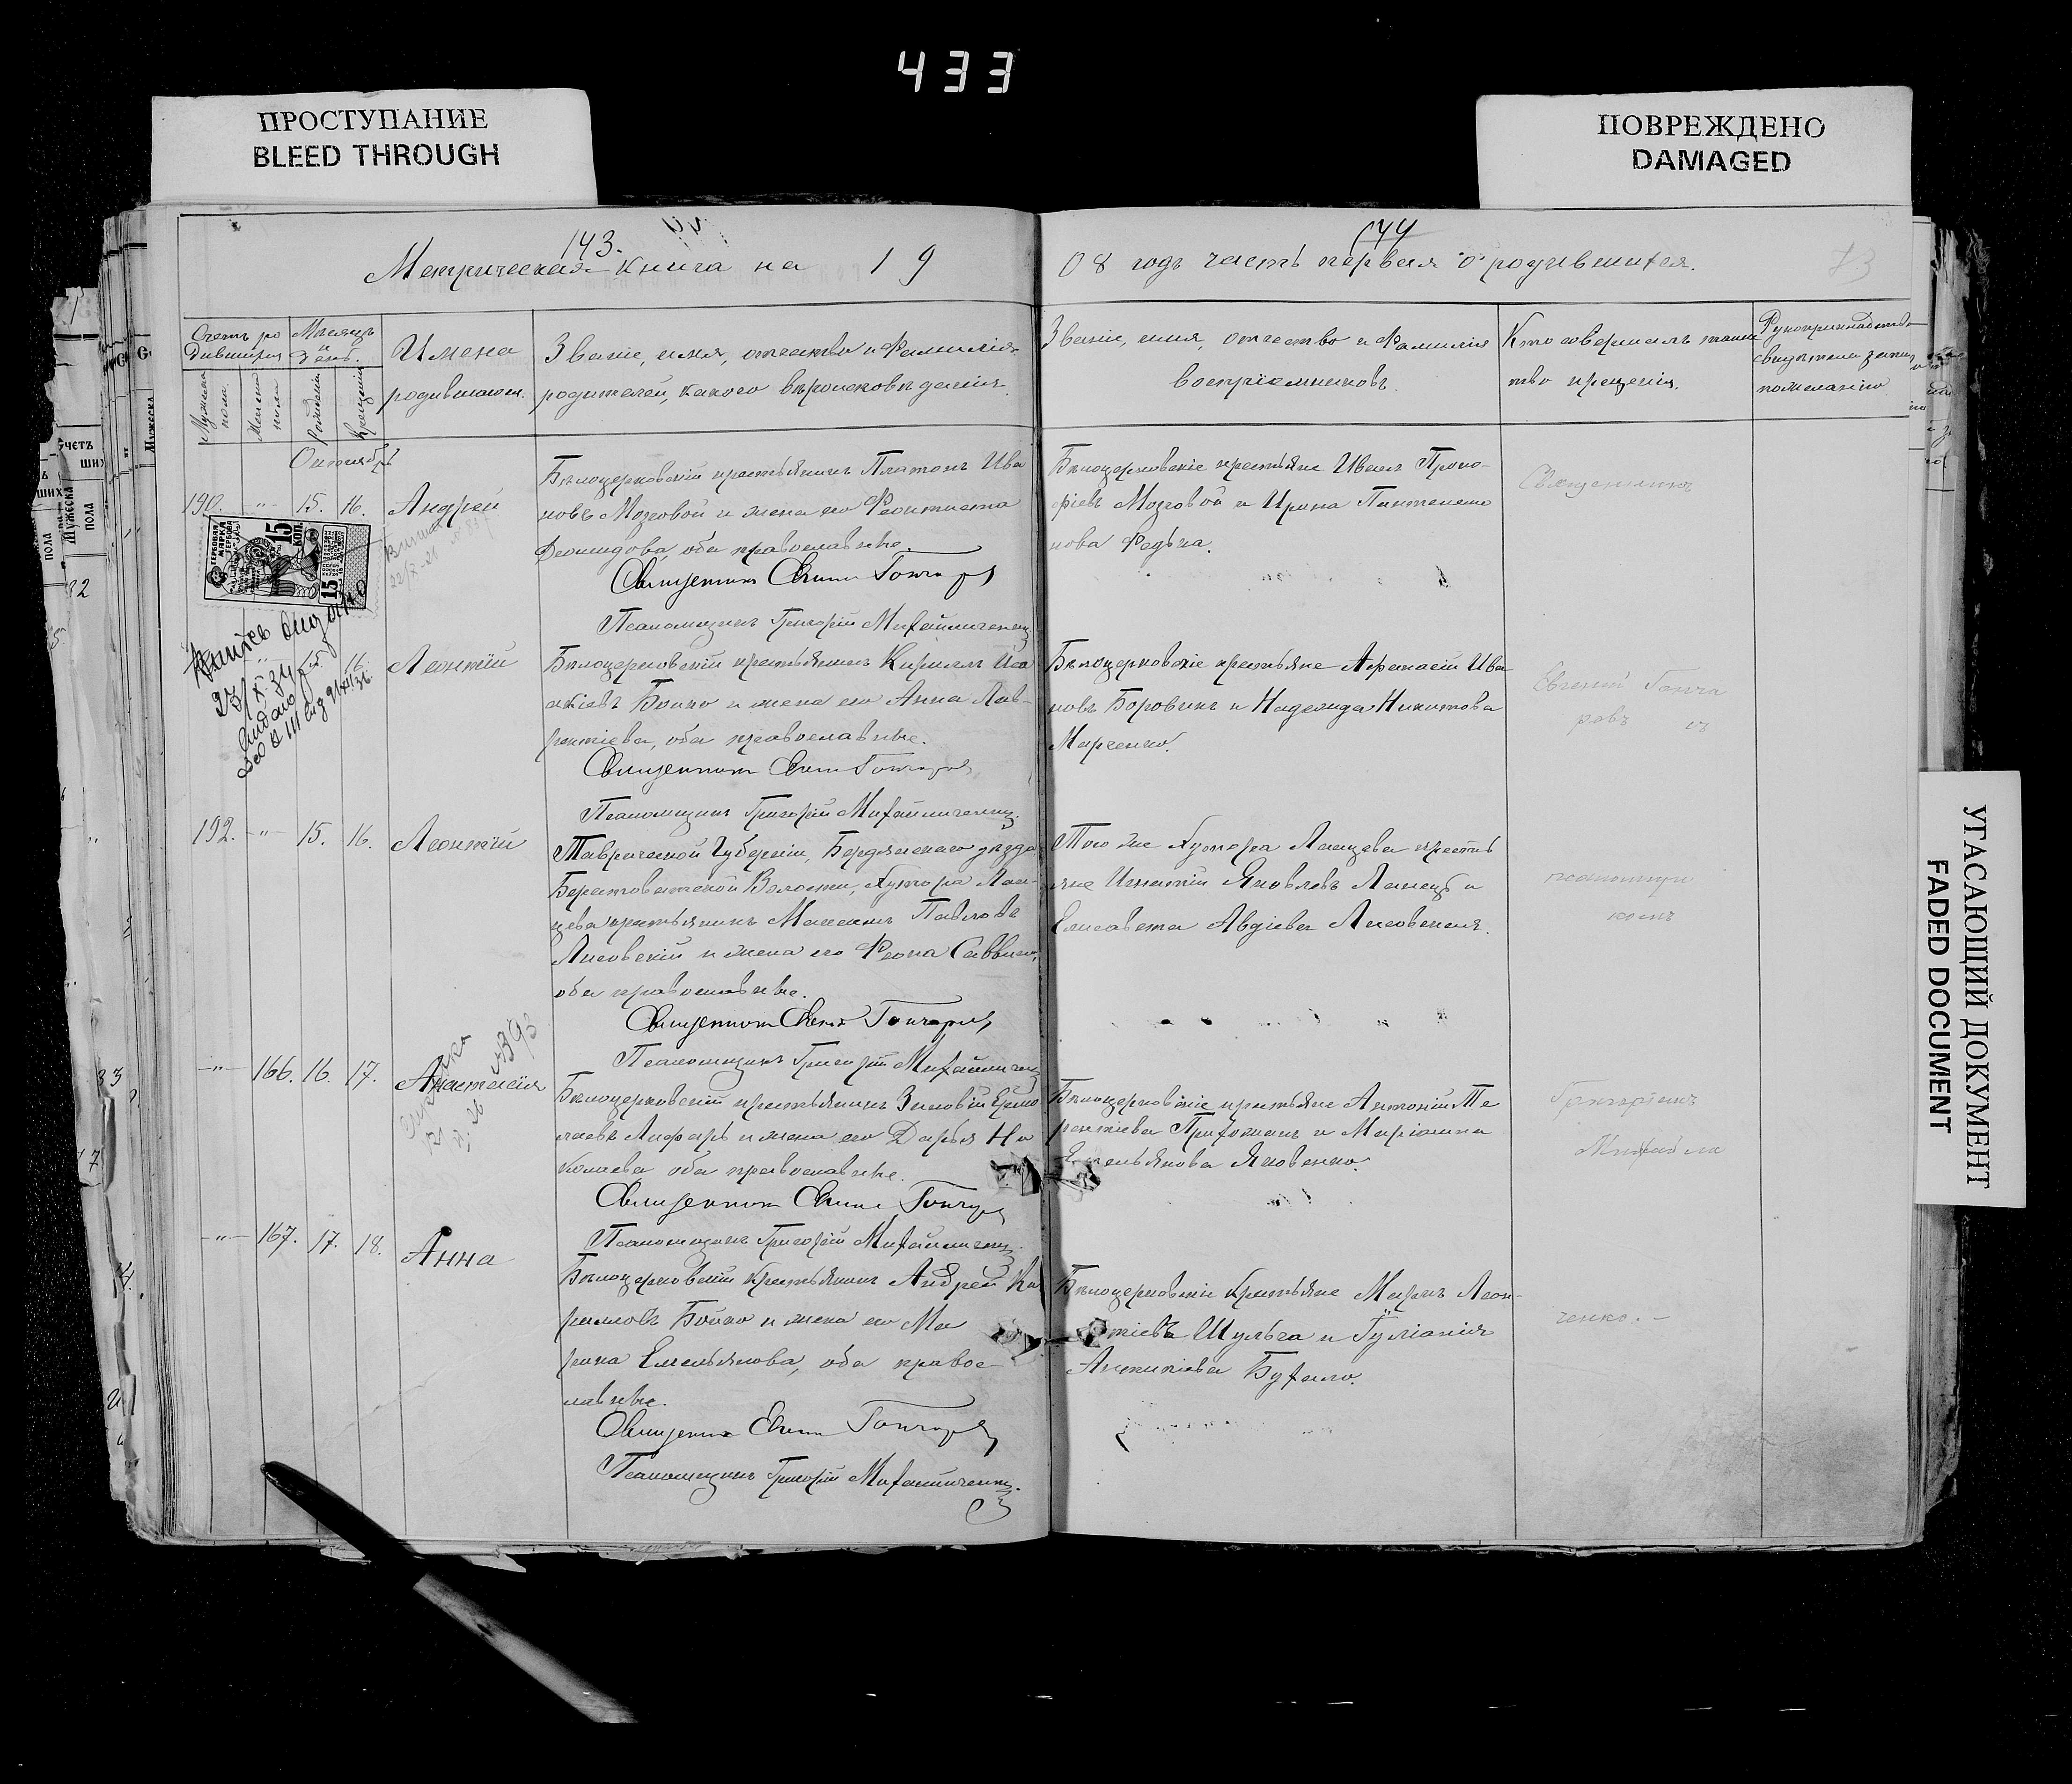 433
ПРОСТУПАНИЕ
BLEED THROUGH
ПОВРЕЖДЕНО
DAMAGED
143.
Метрическая книга на 19
144
08 годъ часть первая о родившихся.
73
Счетъ ро
дившихся
Мужеска
пола.
Женска
пола
Мѣсяцъ
и
день.
Рожденія
Крещенія
Имена
родившихся.
Званіе, имя, отчество и фамилія
родителей, какого вѣроисповѣданія.
Званіе, имя, отчество и фамилія
воспріемниковъ.
Кто совершалъ таинс
тво крещенія.
Рукоприкладство
свидѣтелей записи
по желанію
Октябрь
190. -"- 15. 16. Андрей
Бѣлоцерковскій крестьянинъ Платонъ Ива
новъ Мозговой и жена его Феоктиста
Леонидова, оба православные.
Священникъ Евгеній Гончаровъ
Псаломщикъ Григорій Михайличенко
Бѣлоцерковскіе крестьяне Иванъ Проко-
фіевъ Мозговой и Ирина Пантелеимо
нова Федька.
Священникъ
ГЕРБОВАЯ
МАРКА
15
КОП.
15
15. 16. Леонтій
Бѣлоцерковскій крестьянинъ Кириллъ Иса
акіевъ Бойко и жена его Анна Лав-
рентіева, оба православные.
Священникъ Евгеній Гончаровъ
Псаломщикъ Григорій Михайличенко.
Бѣлоцерковскіе крестьяне Афанасій Ива
новъ Боровикъ и Надежда Никитова
Марченко.
Евгеній Гонча
ровъ съ
192. -"- 15. 16. Леонтій
Таврической Губерніи, Бердянскаго уѣзда
Берестоватской Волости, хутора Лан-
цева крестьянинъ Максимъ Павловъ
Лисовскій и жена его Феона Саввина,
оба православные.
Священникъ Евгеній Гончаровъ
Псаломщикъ Григорій Михайличенко
Того же хутора Ланцева крестья
не Игнатій Яковлевъ Ланецъ и
Елисавета Авдіева Лисовская.
псаломщи
комъ
-"- 166. 16. 17. Анастасія
Бѣлоцерковскій крестьянинъ Зиновій Ермо
лаевъ Лифарь и жена его Дарья Ни
колаева оба православные.
Священникъ Евгеній Гончаровъ
Псаломщикъ Григорій Михайличенко.
Бѣлоцерковскіе крестьяне Антоній Те
рентіевъ Приходько и Маріанна
Емельянова Яковенко.
Григоріемъ
Михайли
-"- 167. 17. 18. Анна
Бѣлоцерковскій крестьянинъ Андрей Ки
рилловъ Бойко и жена его Ма
рина Емельянова, оба правос-
лавные.
Священникъ Евгеній Гончаровъ
Псаломщикъ Григорій Михайличенко.
Бѣлоцерковскіе крестьяне Маркъ Леон-
тіевъ Шульга и Іуліанія
Буфало.
ченко.-
УГАСАЮЩИЙ ДОКУМЕНТ
FADED DOCUMENT